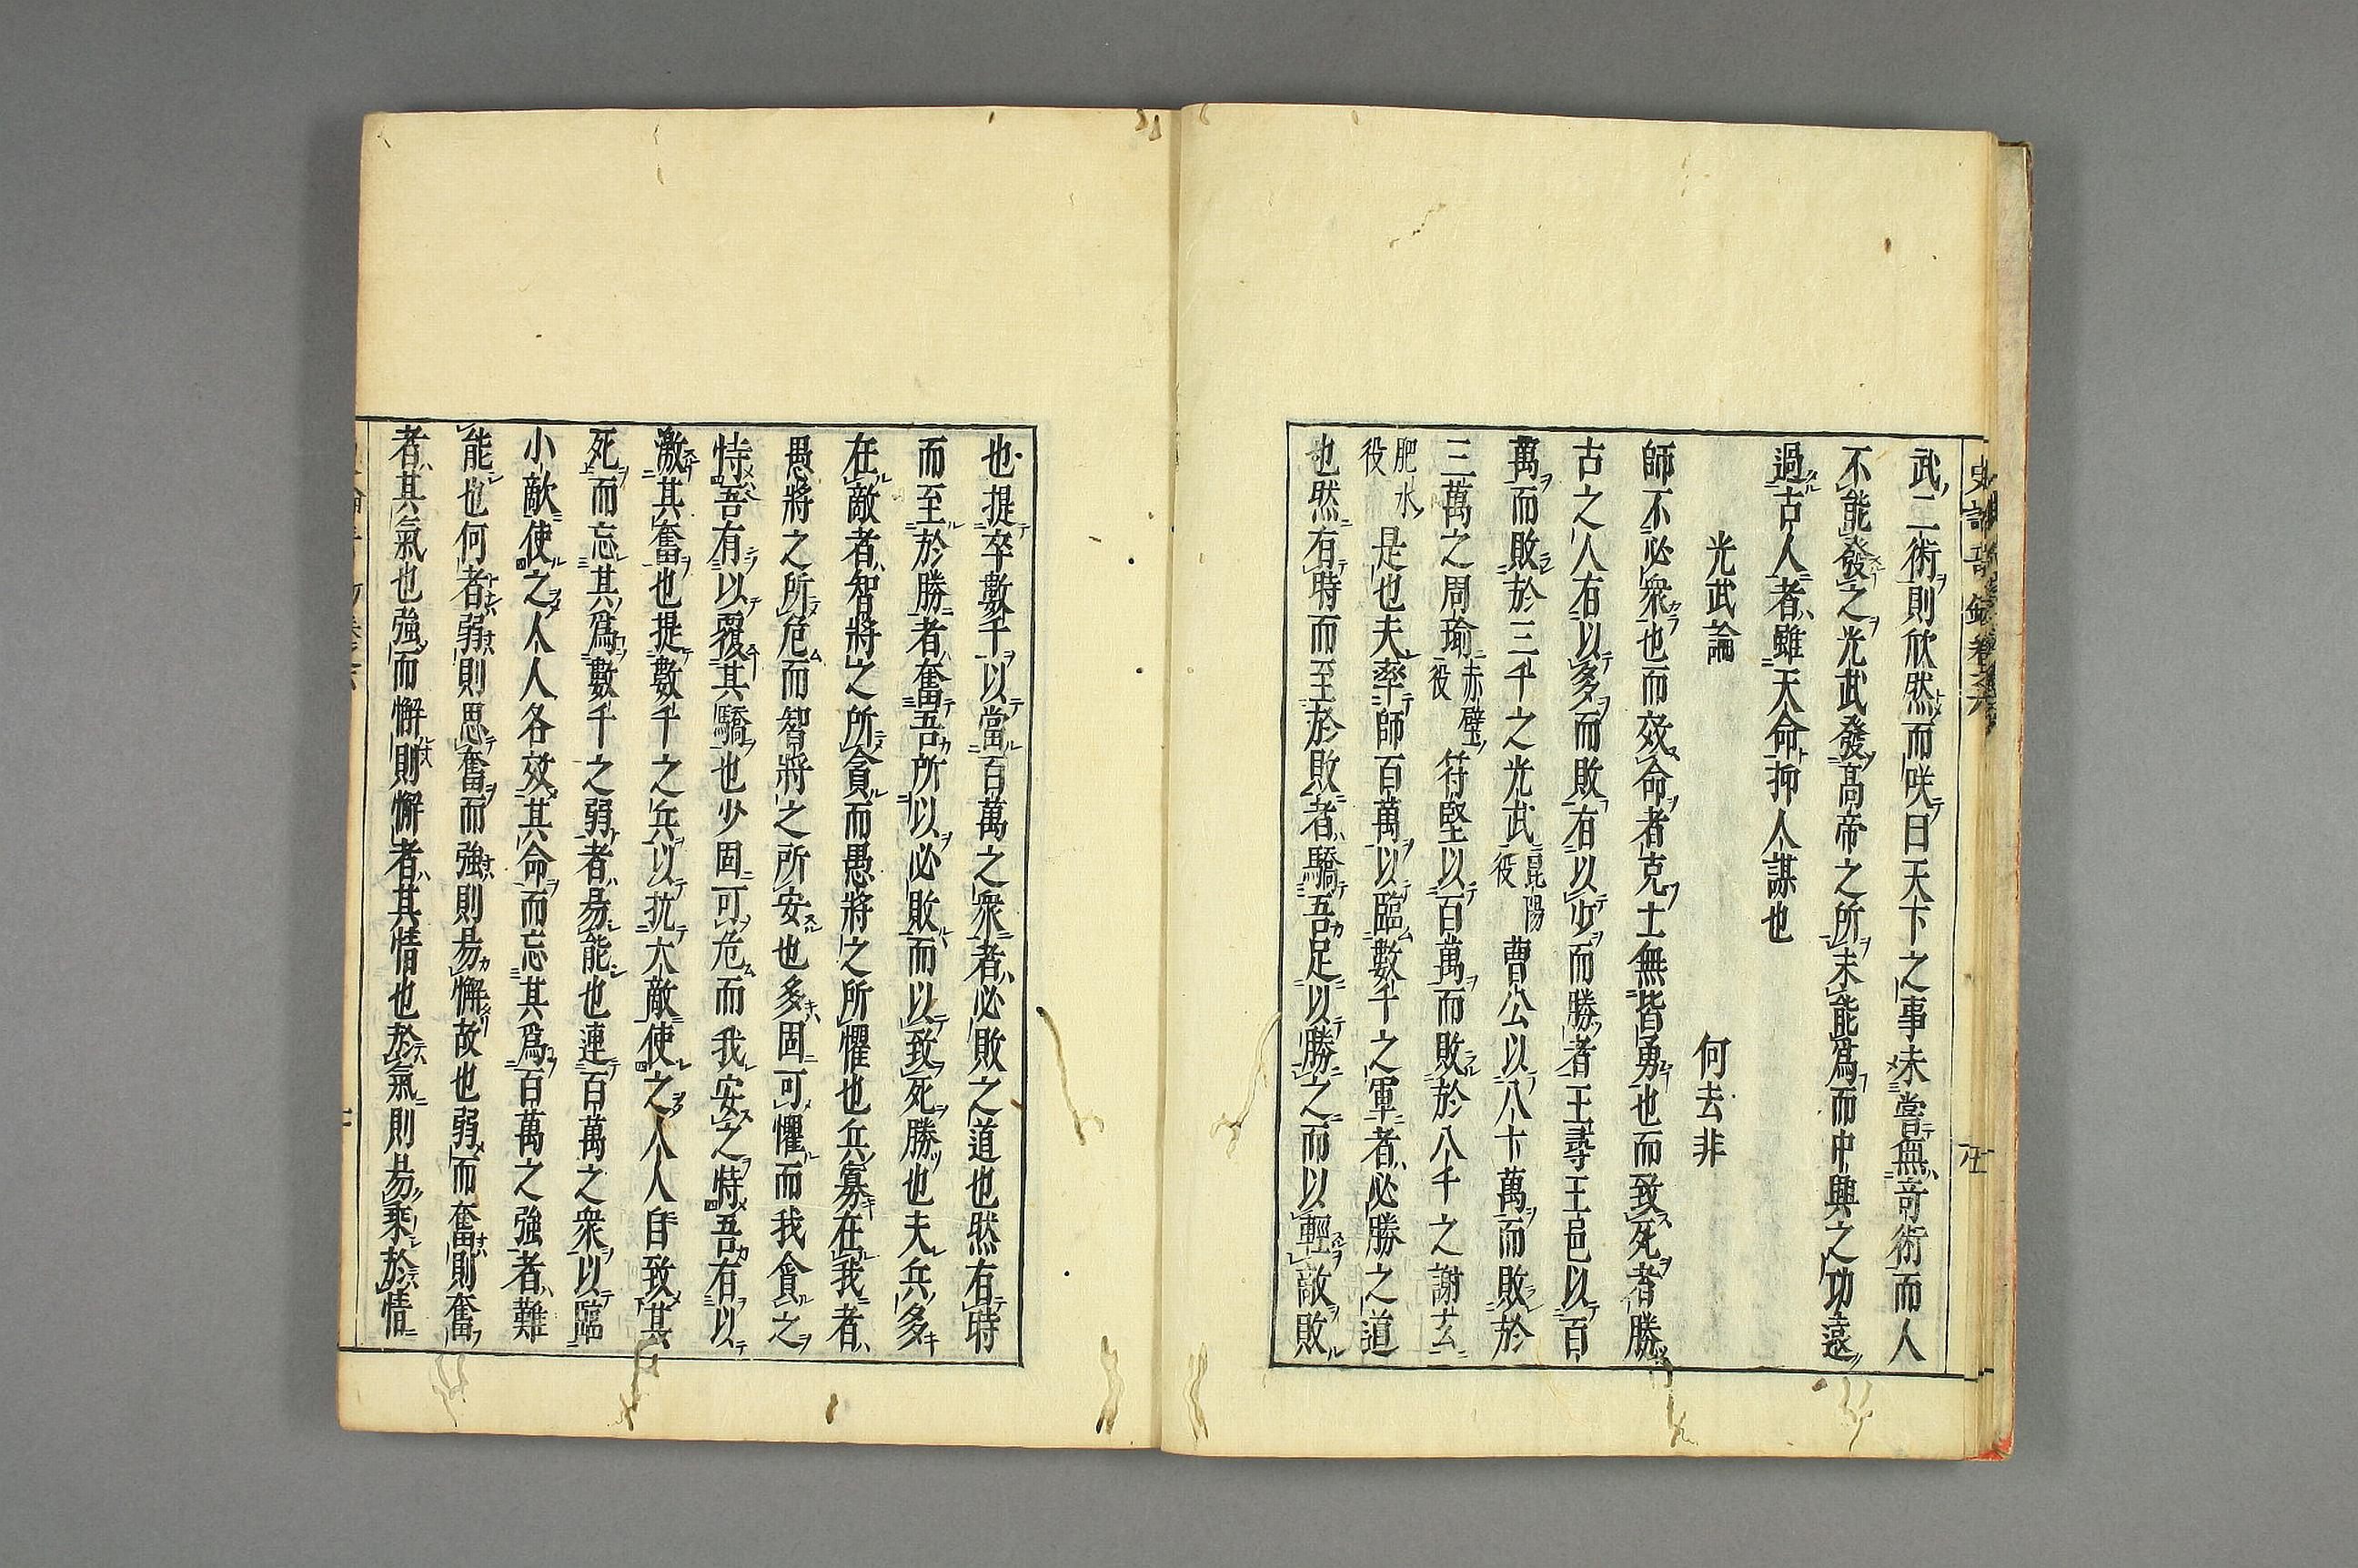 武二術則欣然而咲曰天下之事未嘗無奇術而人
不能發之光武發高帝之所未能爲而中興之功遠
過古人者雖天命抑人謀也
光武論　何去非
師不必衆也而效命者克士無皆勇也而致死者勝
古之人有以多而敗有以少而勝者王尋王邑以百
萬而敗於三千之光武昆陽役曹公以八十萬而敗於
三萬之周瑜赤壁役符堅以百萬而敗於八千之謝玄
肥水役是也夫率師百萬以臨數千之軍者必勝之道
也然有時而至於敗者驕吾足以勝之而以輕敵敗
也提卒數千以當百萬之衆者必敗之道也然有時
而至於勝者奮吾所以必敗而以致死勝也夫兵多
在敵者智將之所貪而愚將之所懼也兵寡在我者
愚將之所危而智將之所安也多固可懼而我貪之
恃吾有以覆其驕也少固可危而我安之恃吾有以
激其奮也提數千之兵以抗大敵使之人人自致其
死而忘其爲數千之弱者易能也連百萬之衆以臨
小敵使之人人各效其命而忘其爲百萬之強者難
能也何者弱則思奮而強則易懈故也弱而奮則奮
者其氣也強而懈則懈者其情也於氣則易乘於情